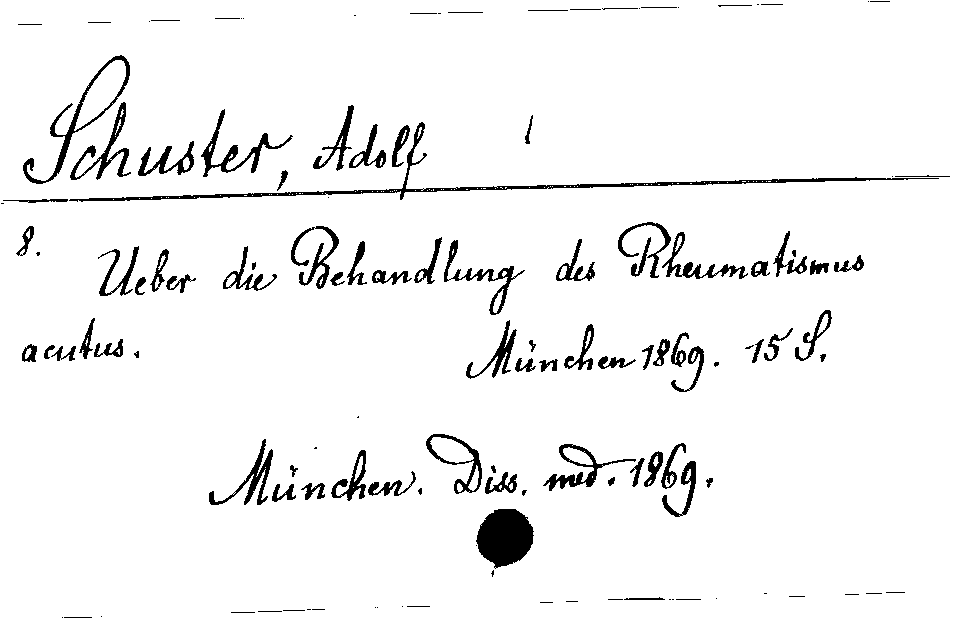 Schuster, Adolf
8.
Ueber die Behandlung des Rheumatismus
acutus. München 1869. 15 S.
München. Diss. med. 1869.